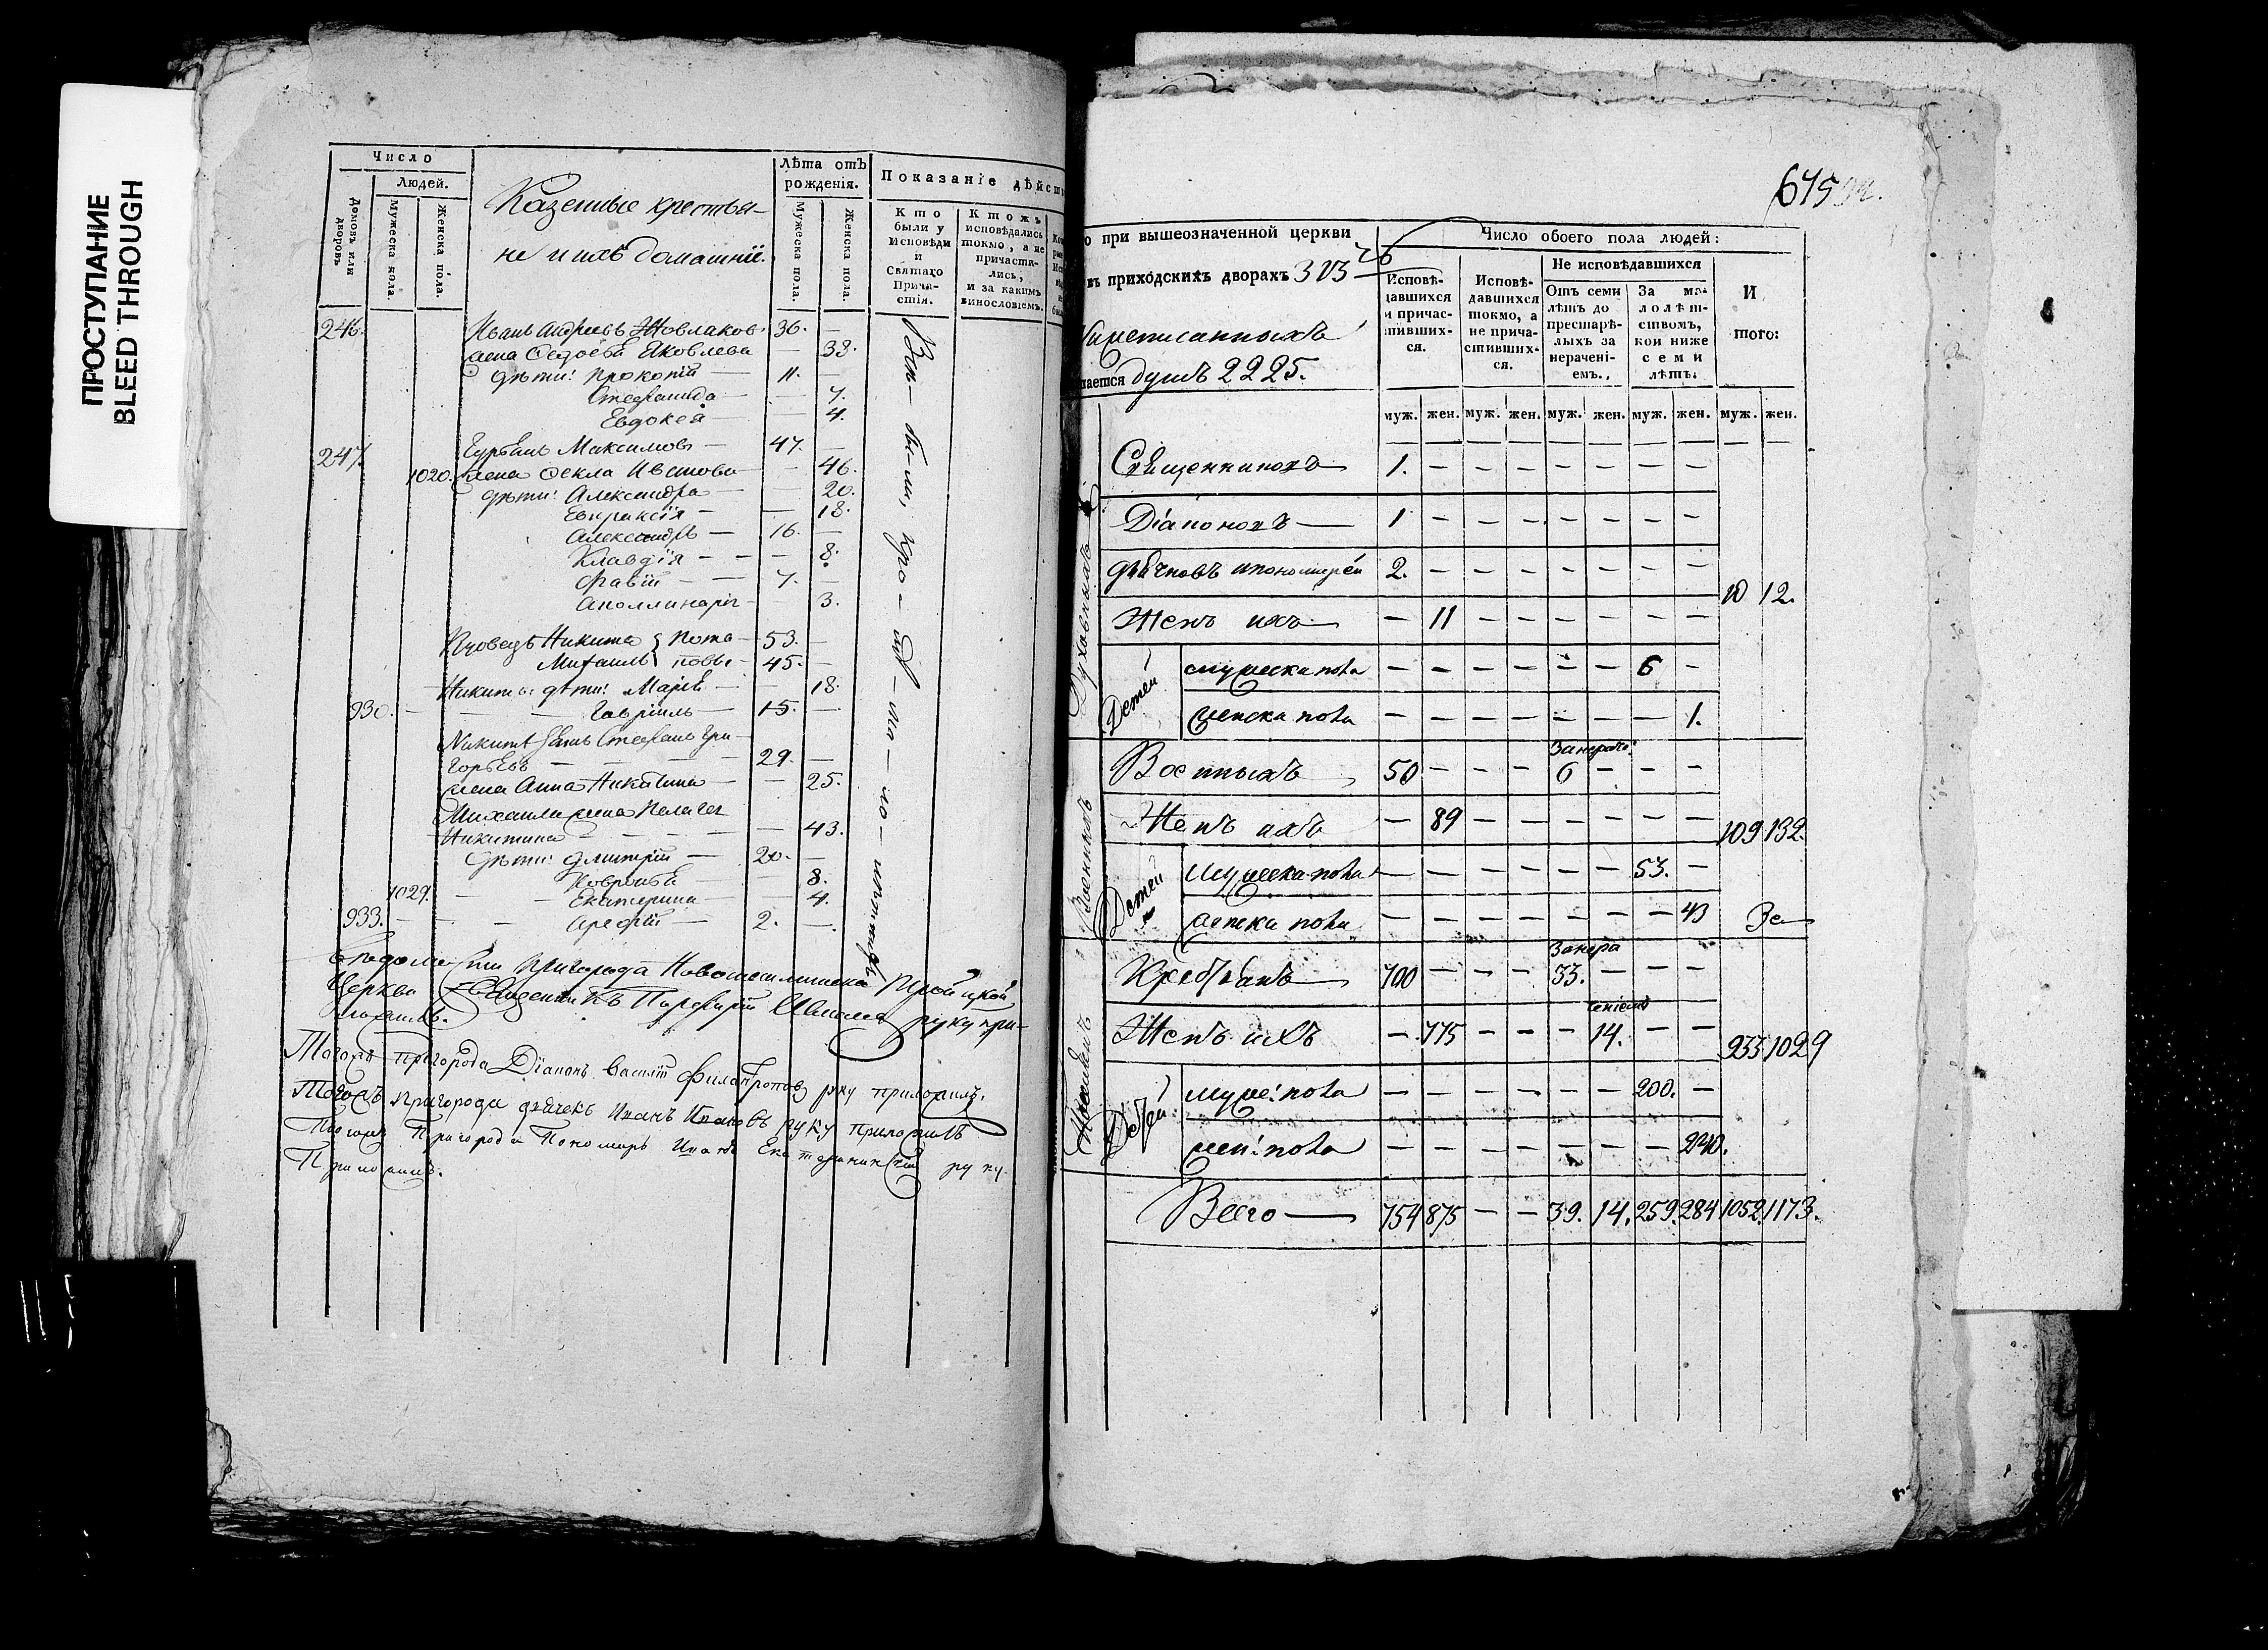 ПРОСТУПАНИЕ
BLEED THROUGH
Число
Людей.
Домовъ или дворовъ
Мужеска пола.
Женска пола.
Казенные крестья-
не и ихъ домашніе.
Лѣта отъ рожденія.
Мужеска пола.
Женска пола.
Показаніе дѣйст
Кто были у Исповѣди и Святаго Причастія.
Ктожъ исповѣдались токмо, а не причастились, и за какимъ винословіемъ.
246. Иванъ Андреевъ 36. —
жена Ѳедосья Яковлева — 38.
дѣти: Прокопій — 11. —
Стефанида — — 7.
Евдокея — 4.
247. Максимовъ — 47. —
1020. жена Ѳекла Иванова — 46.
дѣти: Александра — — 20.
Евпраксія — — 18.
Александръ — 16. —
Клавдія — — — 8.
Флавій — — 7. —
Аполлинарія — 3.
Никита Пота- 53. —
Михаилъ повы — 45. —
Никиты дѣти: Марья — — 18.
930. — — — Гавріилъ — 15. —
Никит зять Стефанъ Гри-
горьевъ — — — — 29. —
жена Анна Никитина — — 25.
Михаила жена Пелагея
Никитина — — — — — 43.
дѣти: Дмитрій — 20. —
— 8.
1029. — — Екатерина — — 4.
933. — — — Арефій — 2. —
пригорода Новошешминска Троицкой
Церкви Священникъ Порфирій Иванов руку при-
ложилъ.
Тогожъ пригорода Діаконъ Василій Филантроповъ руку приложилъ.
Тогожъ пригорода дьячекъ Иванъ Ивановъ руку приложилъ
Тогожъ Пригорода Пономарь Иванъ Екатерининскій руку
Приложилъ.
675
о при вышеозначенной церкви
въ приходскихъ дворахъ 313
26
ается душъ 2225.
Число обоего пола людей:
Исповѣдавшихся и причастившихся.
Исповѣдавшихся токмо, а не причастившихся.
Не исповѣдавшихся
Отъ семи лѣтъ до престарѣлыхъ за нераченіемъ.
За малолѣтствомъ, кои ниже семи лѣтъ.
И того:
муж. жен. муж. жен. муж. жен. муж. жен. муж. жен.
Священниковъ 1. — — — — — — —
Діаконовъ — 1 — — — — — — —
дьячковъ и пономарей 2. — — — — — — —
10 12.
Женъ ихъ — — 11 — — — — — —
Детей
мужеска пола — — — — — — 6 —
женска пола — — — — — — — 1.
Военныхъ 50 — — — 6 — — —
Женъ ихъ — 89 — — — — — — 109 132.
Детей
мужеска пола — — — — — — 53. —
женска пола — — — — — — — 43
Крестьянъ — 700 — — — 33. — — —
Женъ ихъ — 775 — — — 14. — — 933 1029
Детей
муже: пола — — — — — — 200. —
жен: пола — — — — — — — 240.
Всего — 754 875 — — 39. 14. 259. 284 1052. 1173.